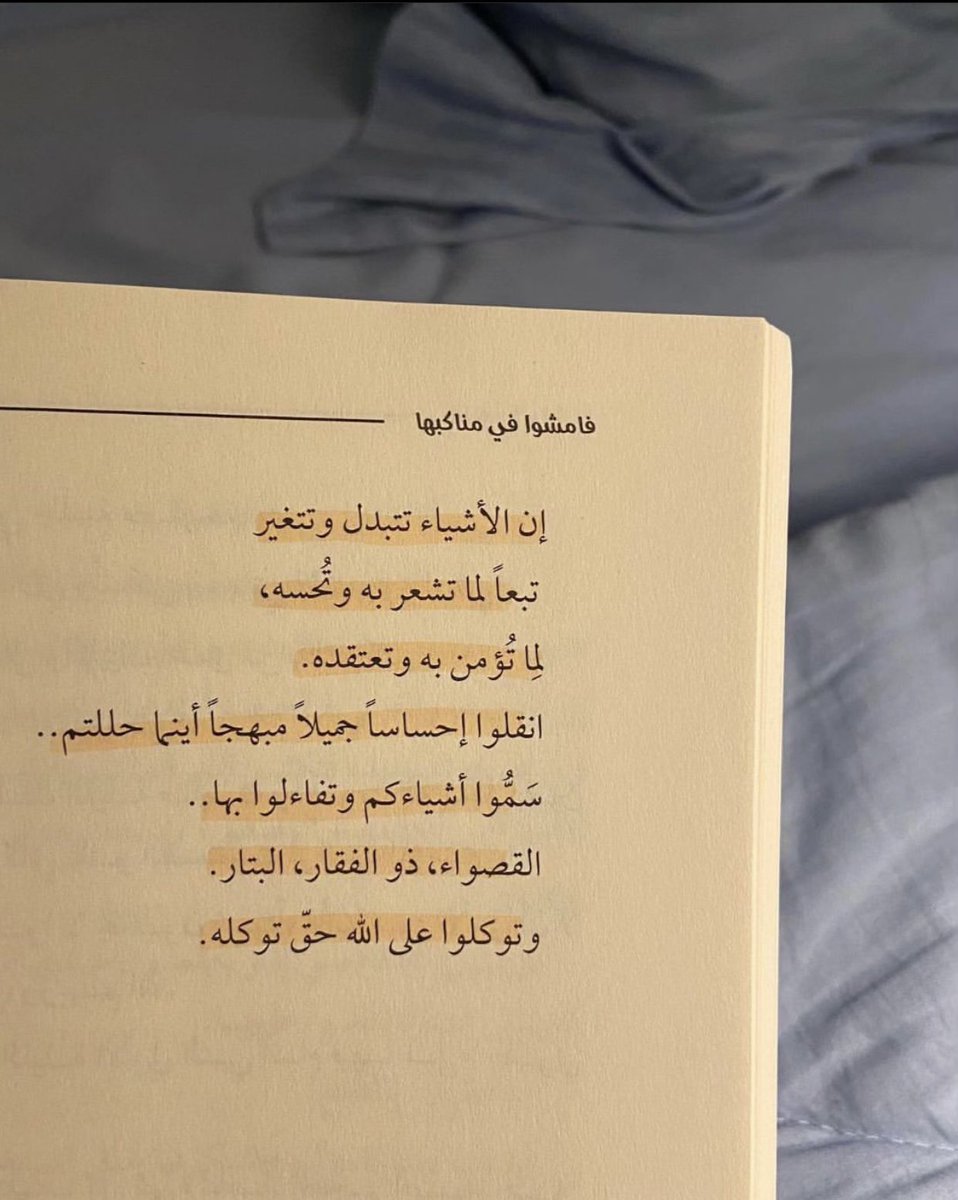 فامشوا في مناكبها
إن الأشياء تتبدل وتتغير
تبعاً لما تشعر به وتُحسه،
لِما تُؤمن به وتعتقده.
انقلوا إحساساً جميلاً مبهجاً أينما حللتم..
سَمُّوا أشياءكم وتفاءلوا بها..
القصواء، ذو الفقار، البتار.
وتوكلوا على الله حقّ توكله.